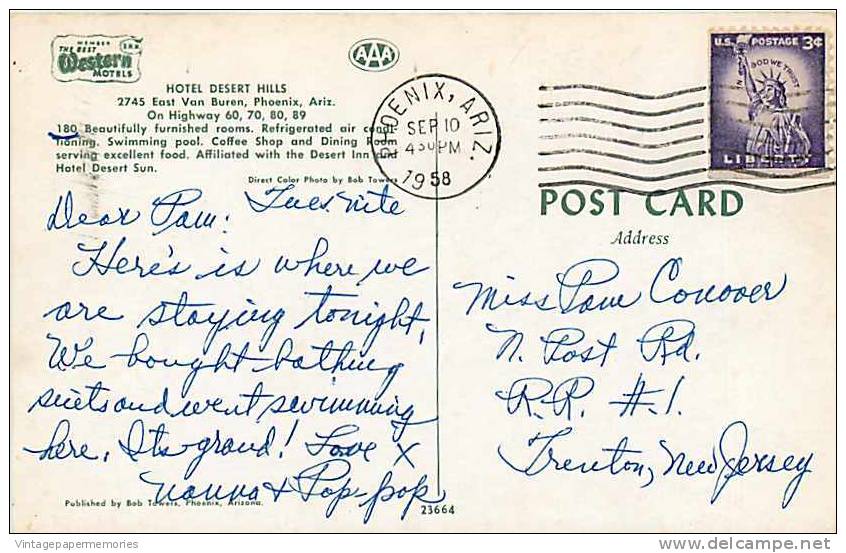 MEMBER
THE BEST
Western
MOTELS
AAA
HOTEL DESERT HILLS
2745 East Van Buren, Phoenix, Ariz.
On Highway 60, 70, 80, 89
180 Beautifully furnished rooms. Refrigerated air condi-
tioning. Swimming pool. Coffee Shop and Dining Room
serving excellent food. Affiliated with the Desert Inn and
Hotel Desert Sun.
Direct Color Photo by Bob Towers
PHOENIX, ARIZ.
SEP 10
4 30 PM
1958
U.S. POSTAGE 3¢
IN GOD WE TRUST
LIBERTY
Tues. nite
Dear Pam:
Here's is where we
are staying tonight,
We bought bathing
suits and went swimming
here. Its grand! Love X
Nanna & Pop-pop
Published by Bob Towers, Phoenix, Arizona.
23664
POST CARD
Address
Miss Pam Conover
N. Post Rd.
R.R. #.1.
Trenton, New Jersey
Vintagepapermemories
delcampe.net